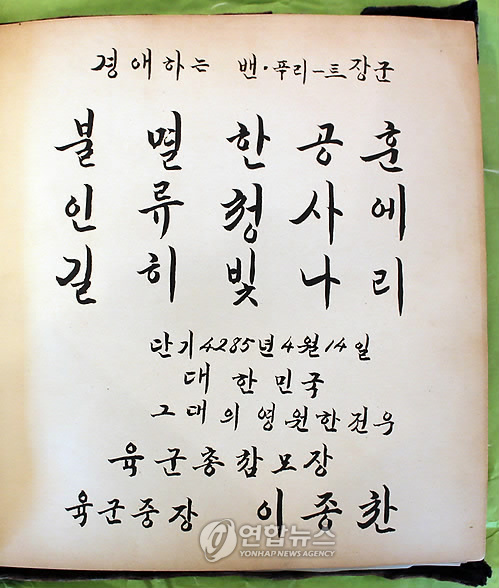 경애하는 밴·푸리—트장군
불 멸 한 공 훈
인 류 청 사 에
길 히 빛 나 리
단기4285년4월14일
대 한 민국
그대의 영원한전우
육군총참모장
육군중장 이 종 찬
연합뉴스
YONHAP NEWS AGENCY